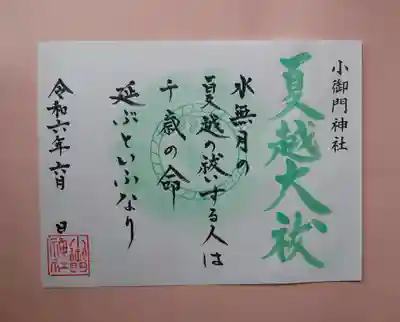 小御門神社
夏越大祓
水無月の
夏越の祓いする人は
千歳の命
延ぶといふなり
令和六年六月 日
小御門神社